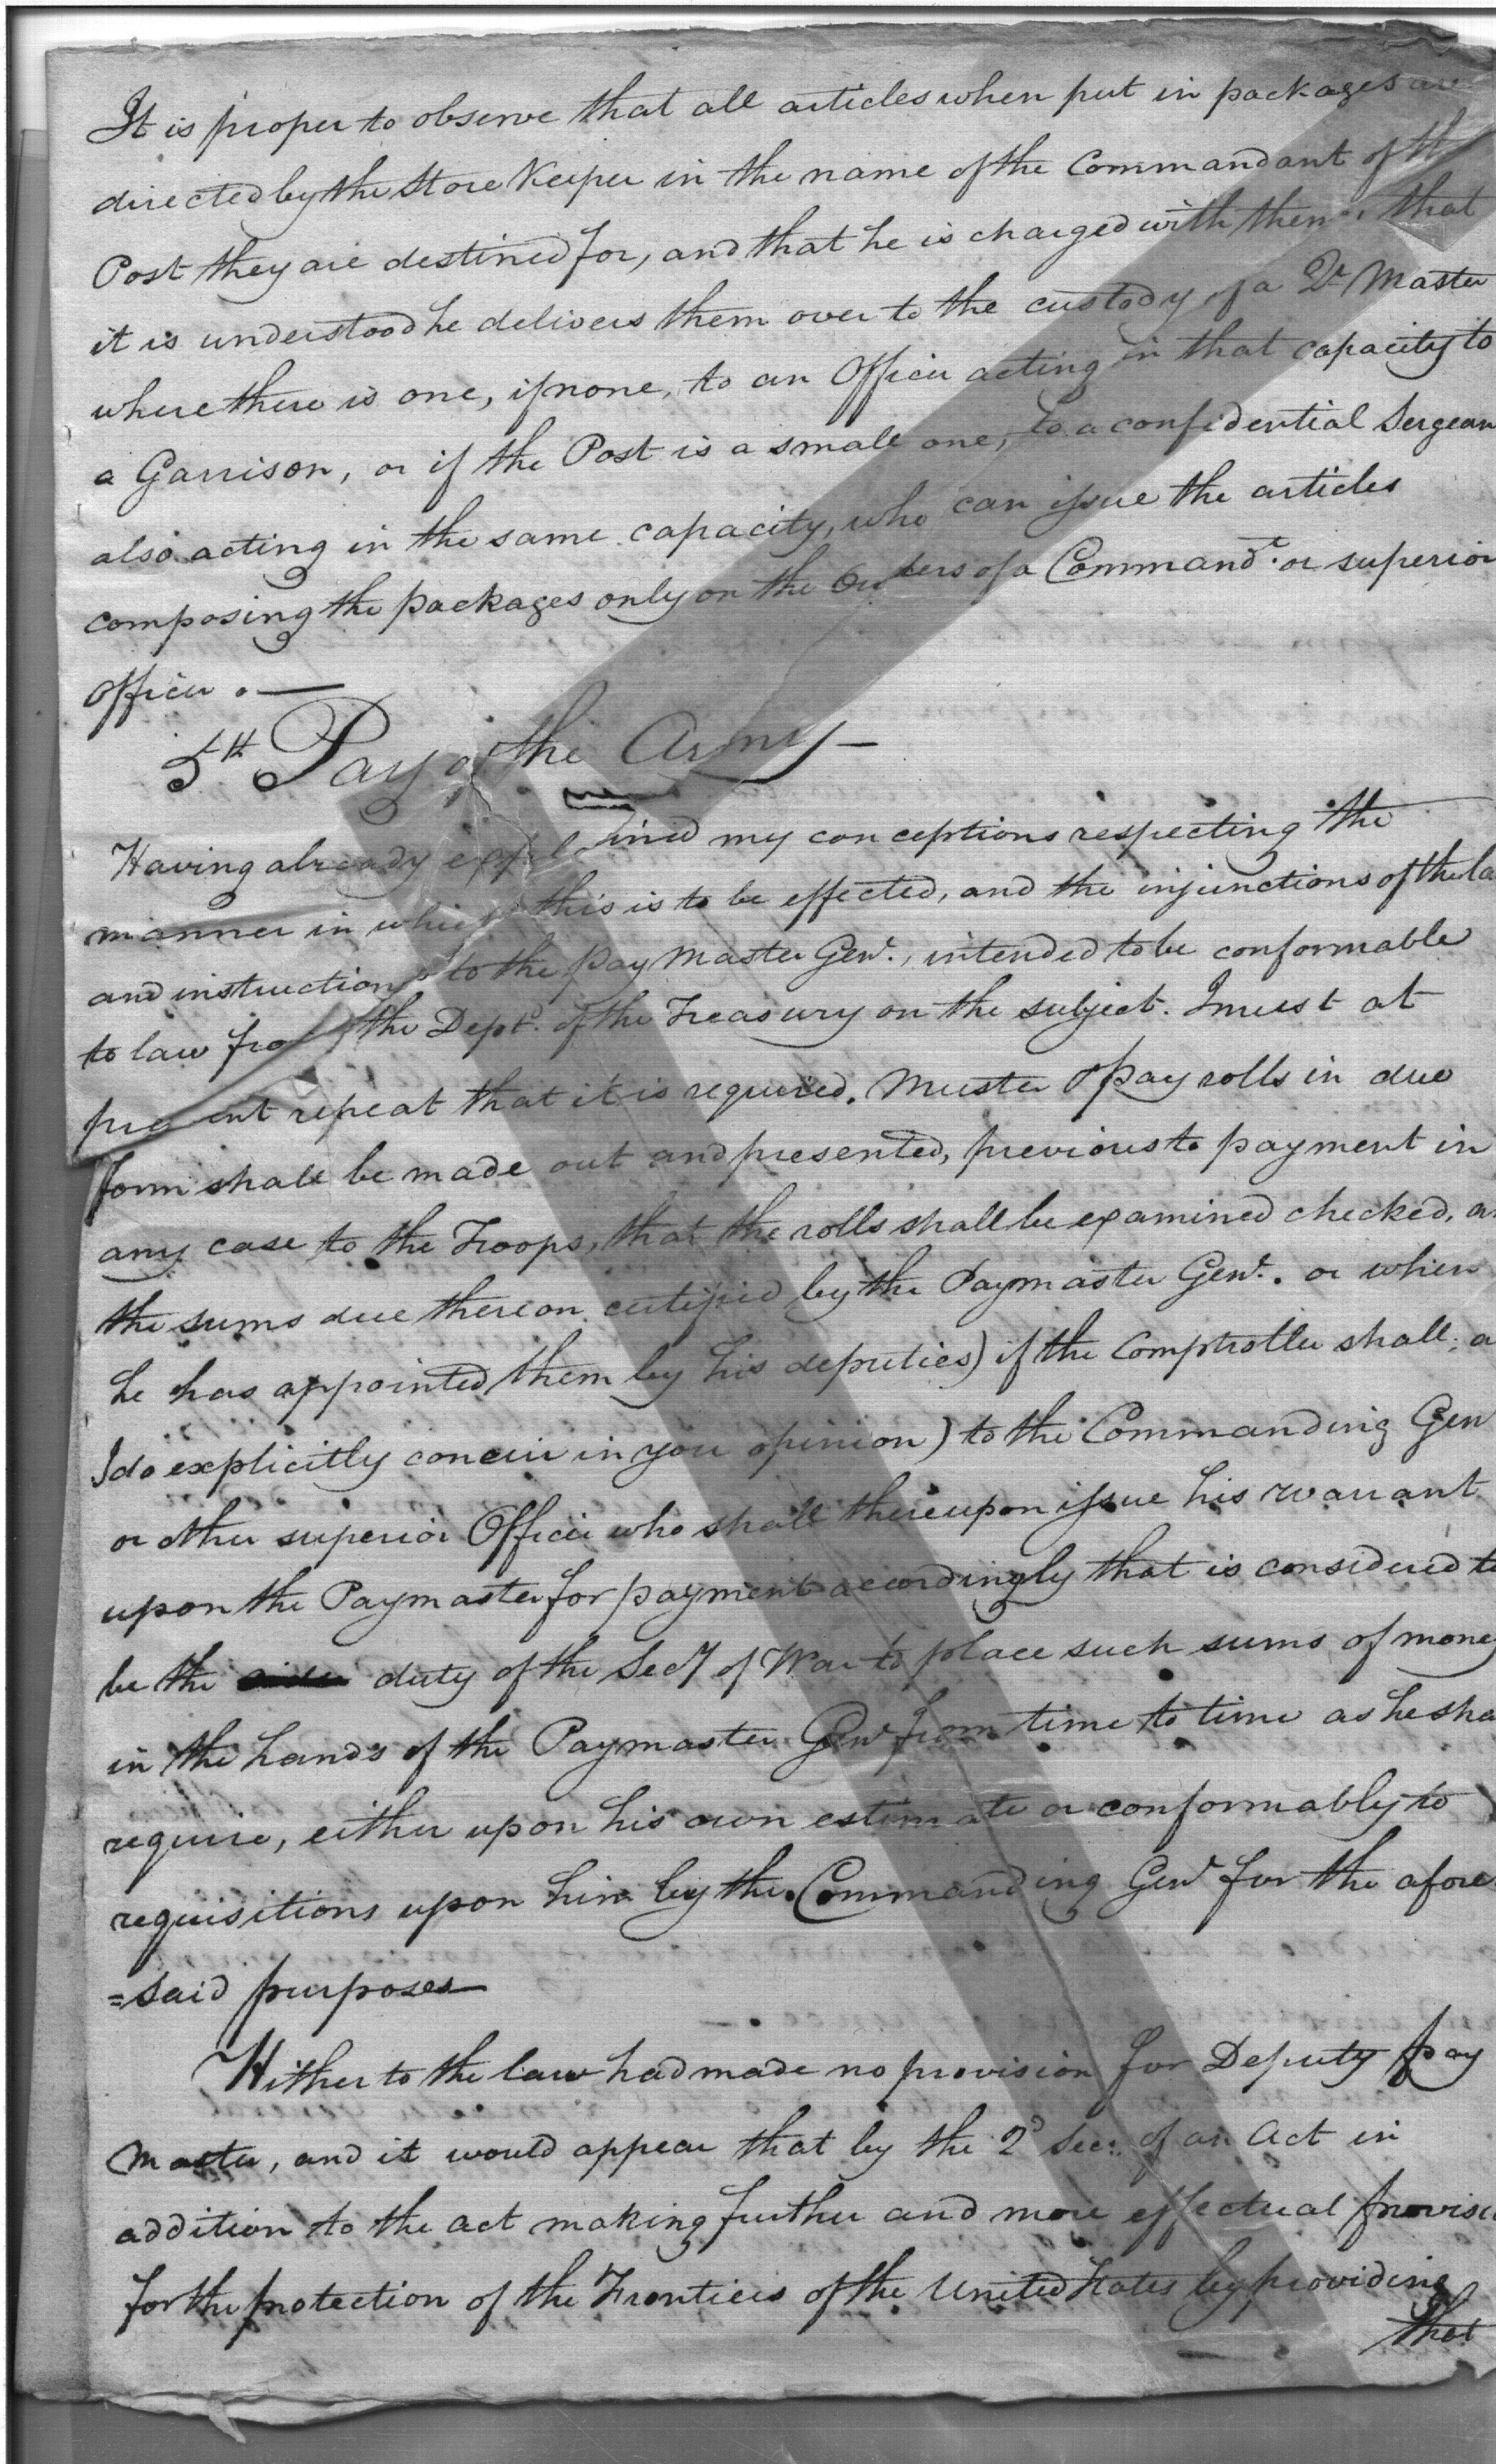 It is proper to observe that all articles when put in packages are
directed by the Store Keeper in the name of the Commandant of the
Post they are destined for, and that he is charged with them. that
it is understood he delivers them over to the custody of a Qr Master
where there is one, if none, to an Officer acting in that capacity to
a Garrison, or if the Post is a small one, to a confidential Sergean
also acting in the same capacity, who can issue the articles
composing the packages only on the Orders of a Commandt. or superior
Officer. —
5th Pay of the Army —
Having already explained my conceptions respecting the
manner in which this is to be effected, and the injunctions of the la
and instructions to the Pay Master Genl., intended to be conformable
to law from the Dept. of the Treasury on the subject. I must at
present repeat that it is required. Muster & pay rolls in due
form shall be made out and presented, previous to payment in
any case to the Troops, that the rolls shall be examined checked, a
the sums due thereon certified by the Paymaster Genl. or when
he has appointed them by his deputies) if the Comptroller shall, a
I do explicitly concur in your opinion) to the Commanding Gen
or other superior Officer who shall thereupon issue his warrant
upon the Paymaster for payment accordingly that is considered to
be the duty of the Secy of War to place such sums of money
in the hands of the Paymaster Genl from time to time as he sha
require, either upon his own estimate or conformably to
requisitions upon him by the Commanding Genl for the afore
=said purposes—
Hither to the law had made no provision for Deputy Pay
Master, and it would appear that by the 2d Sec: of an Act in
addition to the act making further and more effectual provisi
for the protection of the Frontiers of the United States by providing
that